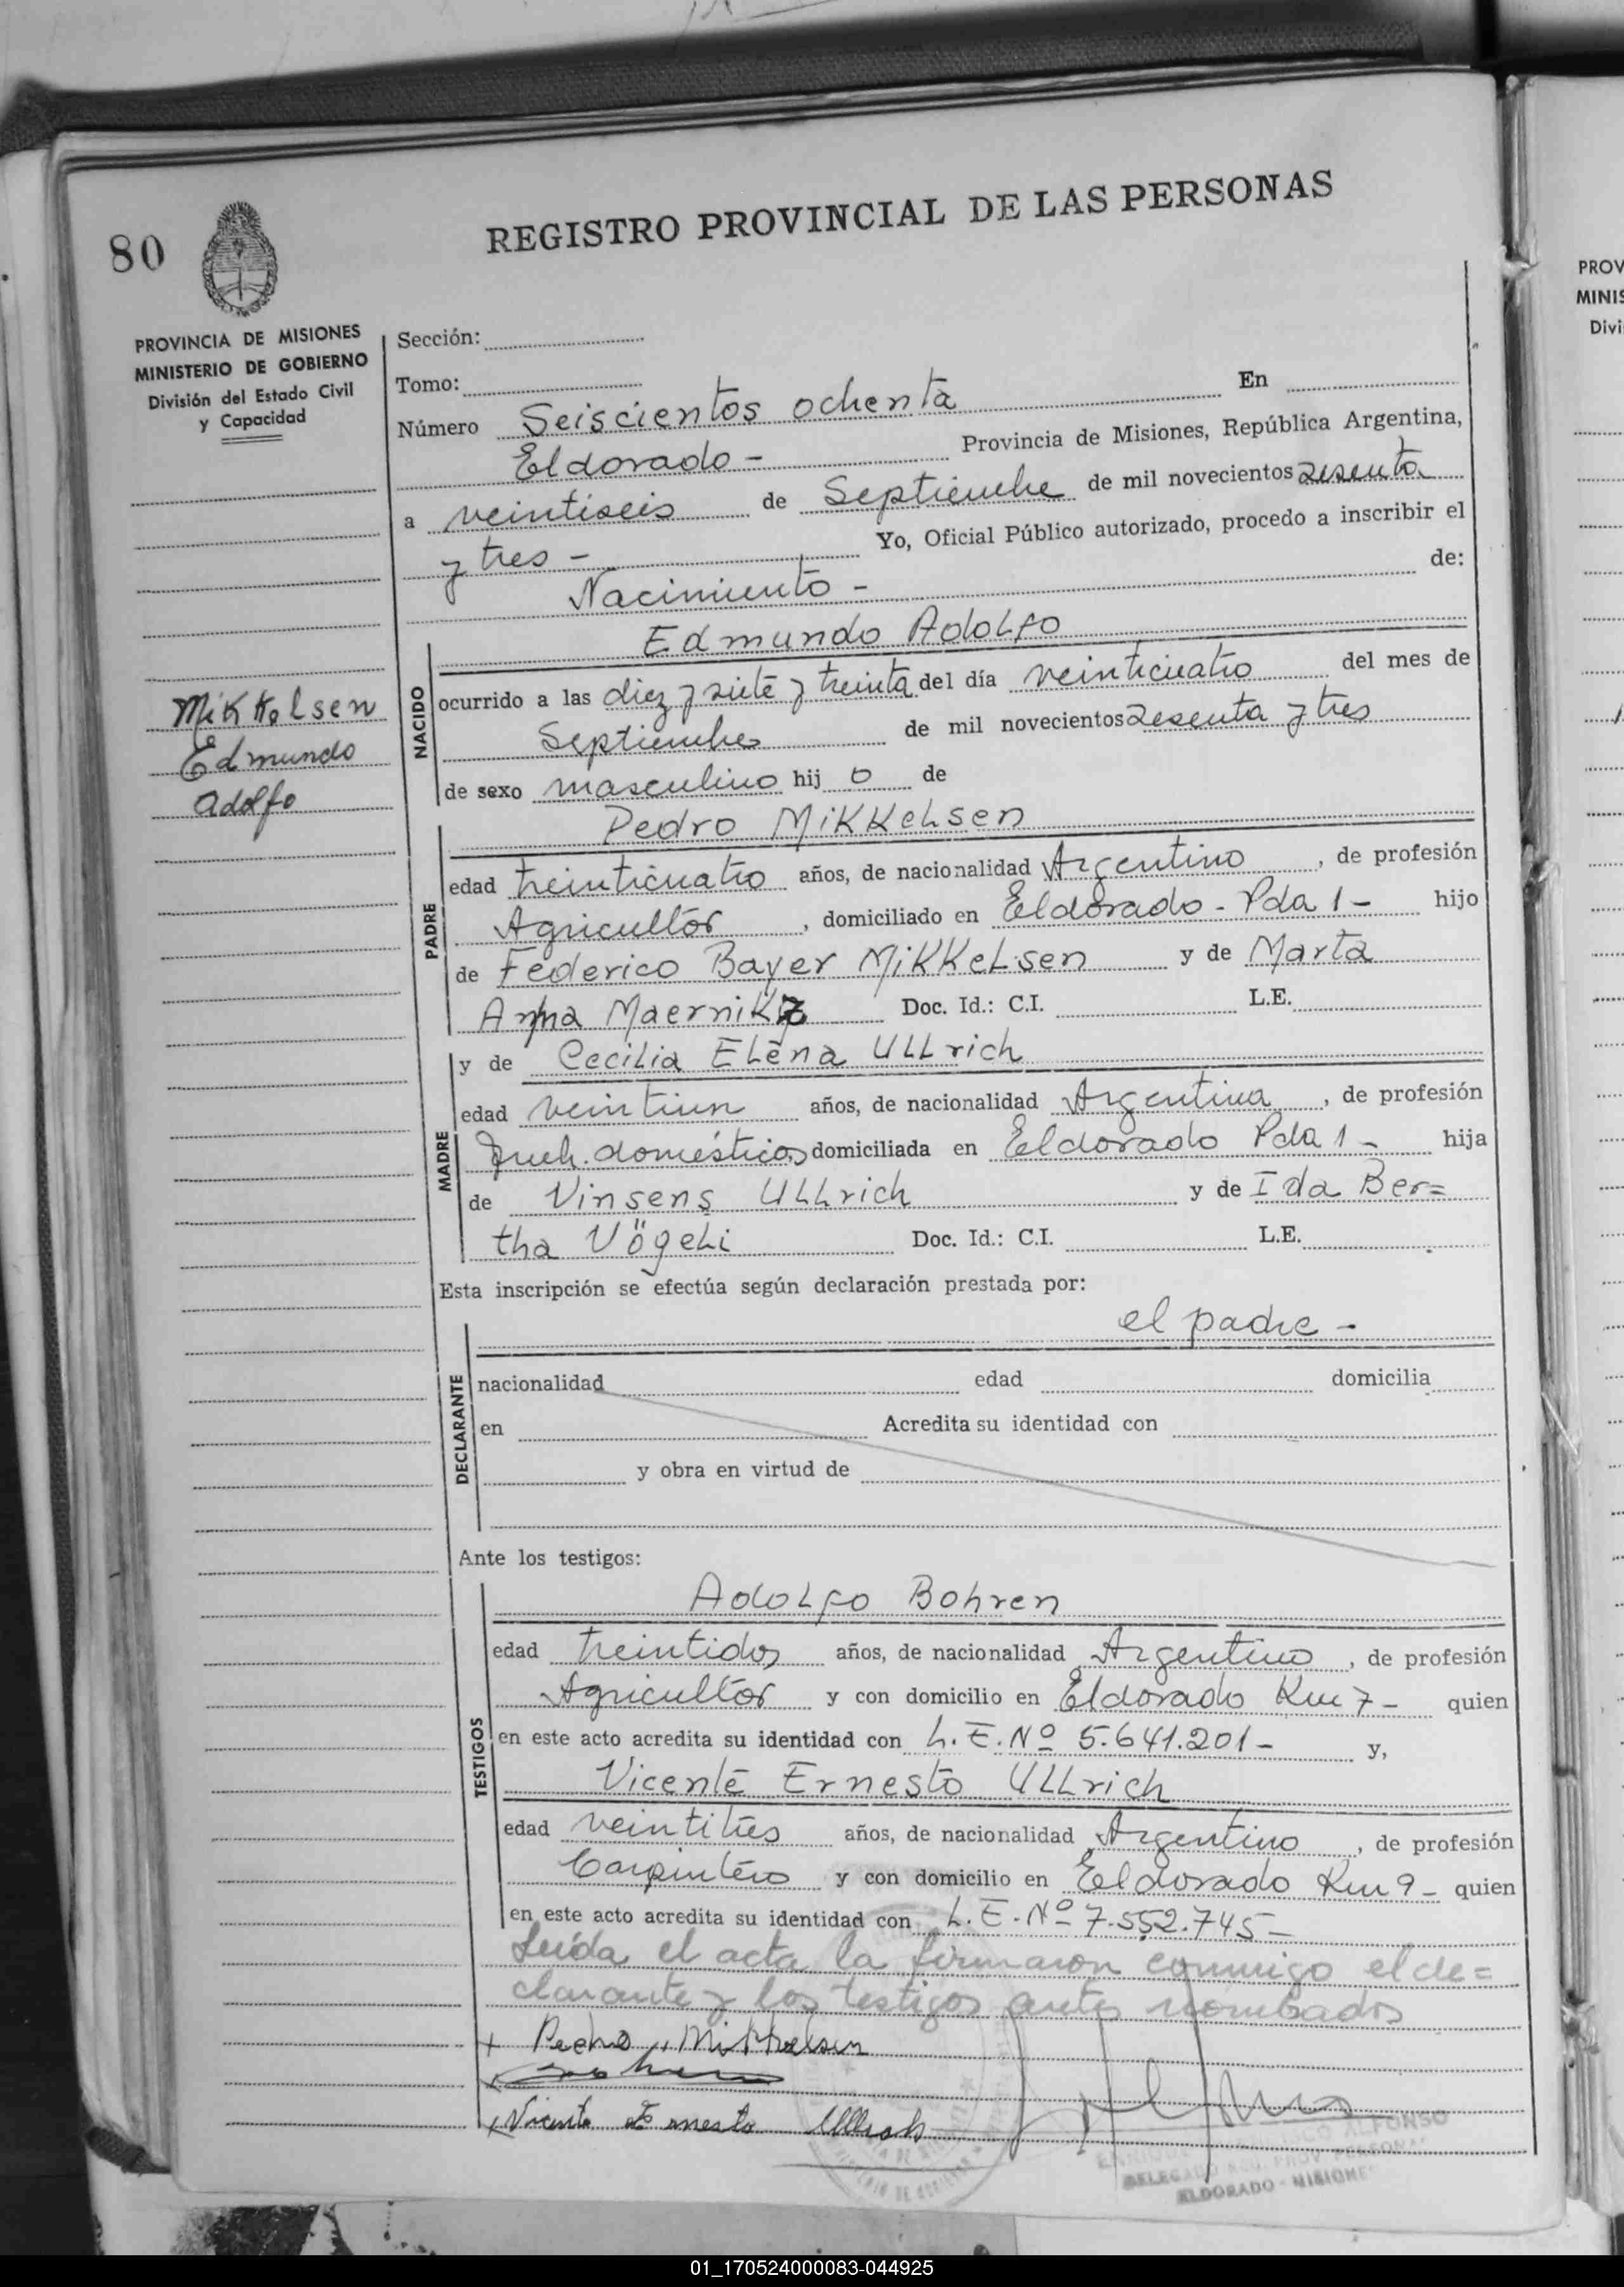 80
REGISTRO PROVINCIAL DE LAS PERSONAS
PROVINCIA DE MISIONES
MINISTERIO DE GOBIERNO
División del Estado Civil
y Capacidad
Sección:
Tomo:
Número Seiscientos ochenta En
Eldorado - Provincia de Misiones, República Argentina,
a veintiseis de Septiembre de mil novecientos sesenta
y tres - Yo, Oficial Público autorizado, procedo a inscribir el
Nacimiento - de:
Mikkelsen
Edmundo
Adolfo
NACIDO
Edmundo Adolfo
ocurrido a las diez y siete y treinta del día veinticuatro del mes de
Septiembre de mil novecientos sesenta y tres
de sexo masculino hij o de
PADRE
Pedro Mikkelsen
edad treinticuatro años, de nacionalidad Argentino, de profesión
Agricultor, domiciliado en Eldorado - Pda 1 - hijo
de Federico Bayer Mikkelsen y de Marta
Anna Doc. Id.: C.I. L.E.
MADRE
y de Cecilia Elena Ullrich
edad veintiun años, de nacionalidad Argentina, de profesión
domésticos domiciliada en Eldorado Pda 1 - hija
de Vinsens Ullrich y de Ida Ber=
tha Vögeli Doc. Id.: C.I. L.E.
Esta inscripción se efectúa según declaración prestada por:
DECLARANTE
el padre -
nacionalidad edad domicilia
en Acredita su identidad con
y obra en virtud de
Ante los testigos:
TESTIGOS
Adolfo Bohren
edad treintidos años, de nacionalidad Argentino, de profesión
Agricultor y con domicilio en Eldorado Km 7 - quien
en este acto acredita su identidad con L.E. Nº 5.641.201 - y,
Vicente Ernesto Ullrich
edad veintitres años, de nacionalidad Argentino, de profesión
Carpintero y con domicilio en Eldorado Km 9 - quien
en este acto acredita su identidad con L.E. Nº 7.552.745 -
Leída el acta la firmaron conmigo el de=
clarante y los testigos antes nombrados
+ Pedro Mikkelsen
x Vicente Ernesto Ullrich
ALFONSO
ELDORADO - MISIONES
PROV
MINIS
Divi
01_170524000083-044925